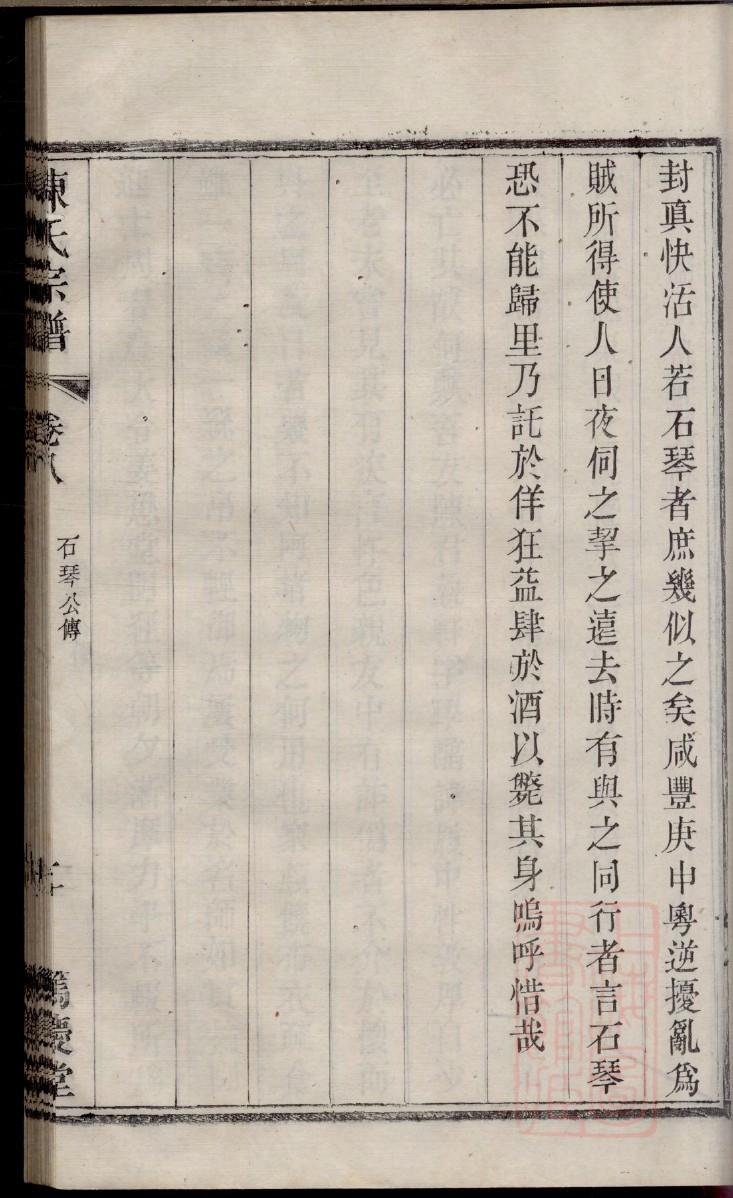 封眞快活人若石琴者庶幾似之矣咸豐庚申粵逆擾亂爲
賊所得使人日夜伺之挈之遠去時有與之同行者言石琴
恐不能歸里乃託於佯狂益肆於酒以斃其身嗚呼惜哉
陳氏宗譜
卷八
石琴公傳
二
篤慶堂